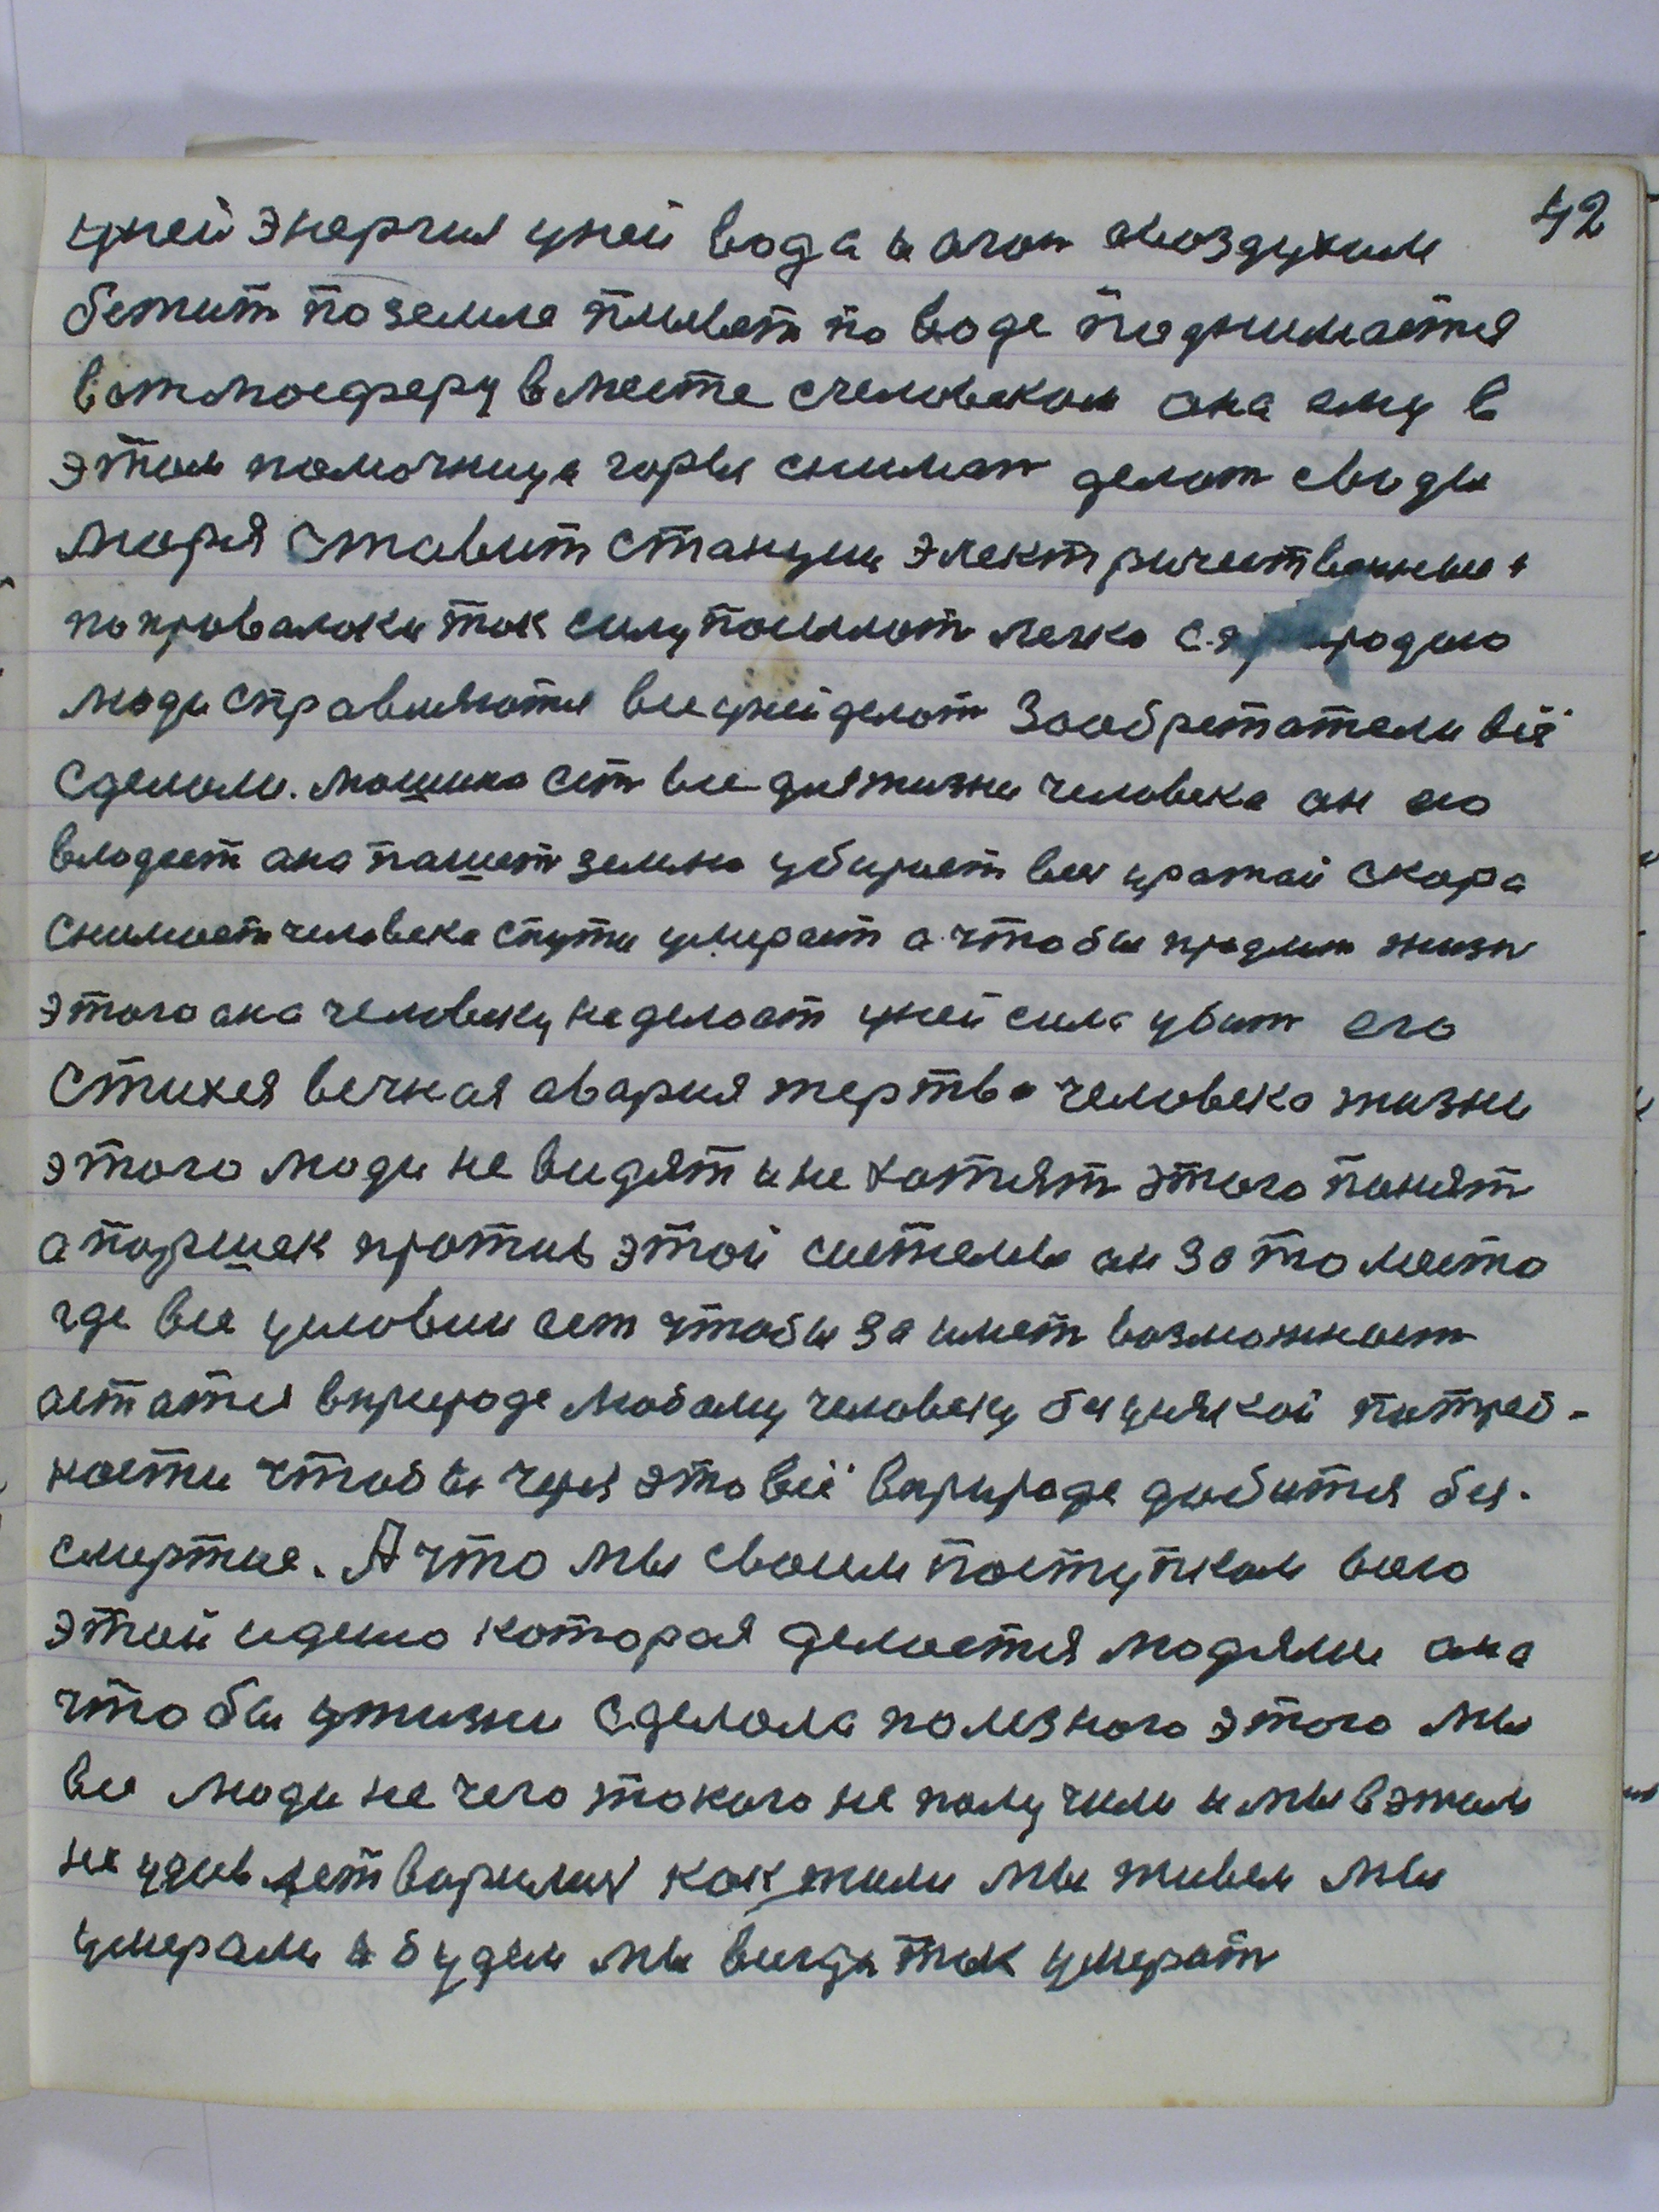 42
уней энергия уней вода и огон авоздухим
бежит поземле пливет по воде паднимается
ватмосферу вместе счеловеком ана ему в
этом памочница гори снимат делат своды
моря ставит станции электричиственные
попровалоки ток силу пасилат легко с природою
люди справляются все уней делат Зообретатели всё
сделали. машина ест все дляжизни человека ан ею
владеет ана пашет землю убирает вес уражай скора
снимает человека спути умирает а чтобы продлит жизн
этого ана человеку неделоет уней сила убит его
стихея вечная авария жертва человека жизни
этого люди не видят и не хатят этого панят
а паршек против этой системы ан за то место
где все условии ест чтобы за имет возможност
астатся вприроде любому человеку безуякой патреб-
ности чтобы через это всё вприроде дабится без-
смертие. А что мы своим паступком всего
этой идею которая делается людями ана
чтобы ужизни сделала полезного этого мы
все люди не чего токого не получили и мы вэтом
не удовлетварилися как жили мы живем мы
умерали и будем мы всегда так умерат